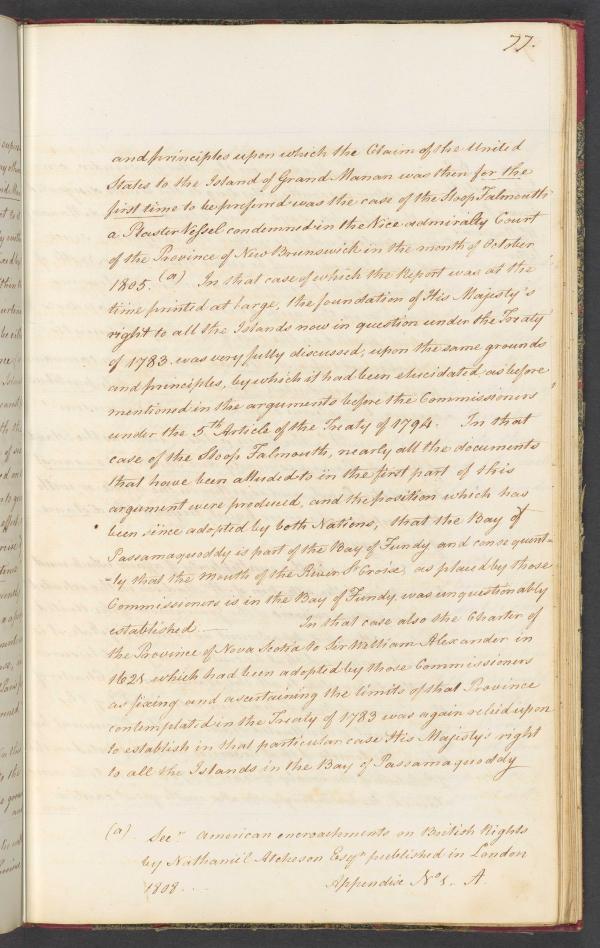 77.
and principles upon which the Claim of the United
States to the Island of Grand Manan was then for the
first time to be preferred was the case of the Sloop Falmouth
a Plaster Vessel condemned in the Vice admiralty Court
of the Province of New Brunswick in the month of October
1805. (a) In that case of which the Report was at the
time printed at large, the foundation of His Majesty's
right to all the Islands now in question under the Treaty
of 1783 was very fully discussed, upon the same grounds
and principles, by which it had been elucidated as before
mentioned in the arguments before the Commissioners
under the 5th Article of the Treaty of 1794. In that
case of the Sloop Falmouth, nearly all the documents
that have been alluded to in the first part of this
argument were produced, and the position which has
been since adopted by both Nations, that the Bay of
Passamaquoddy is part of the Bay of Fundy and consequent=
=ly that the mouth of the River St Croix, as placed by those
Commissioners is in the Bay of Fundy, was unquestionably
established.— In that case also the Charter of
the Province of Nova Scotia to Sir William Alexander in
1621 which had been adopted by those Commissioners
as fixing and ascertaining the limits of that Province
contemplated in the Treaty of 1783 was again relied upon
to establish in that particular case His Majesty's right
to all the Islands in the Bay of Passamaquoddy
(a) See American encroachments on British Rights
by Nathaniel Atcheson Esqr published in London
1808... Appendix No 1. A.